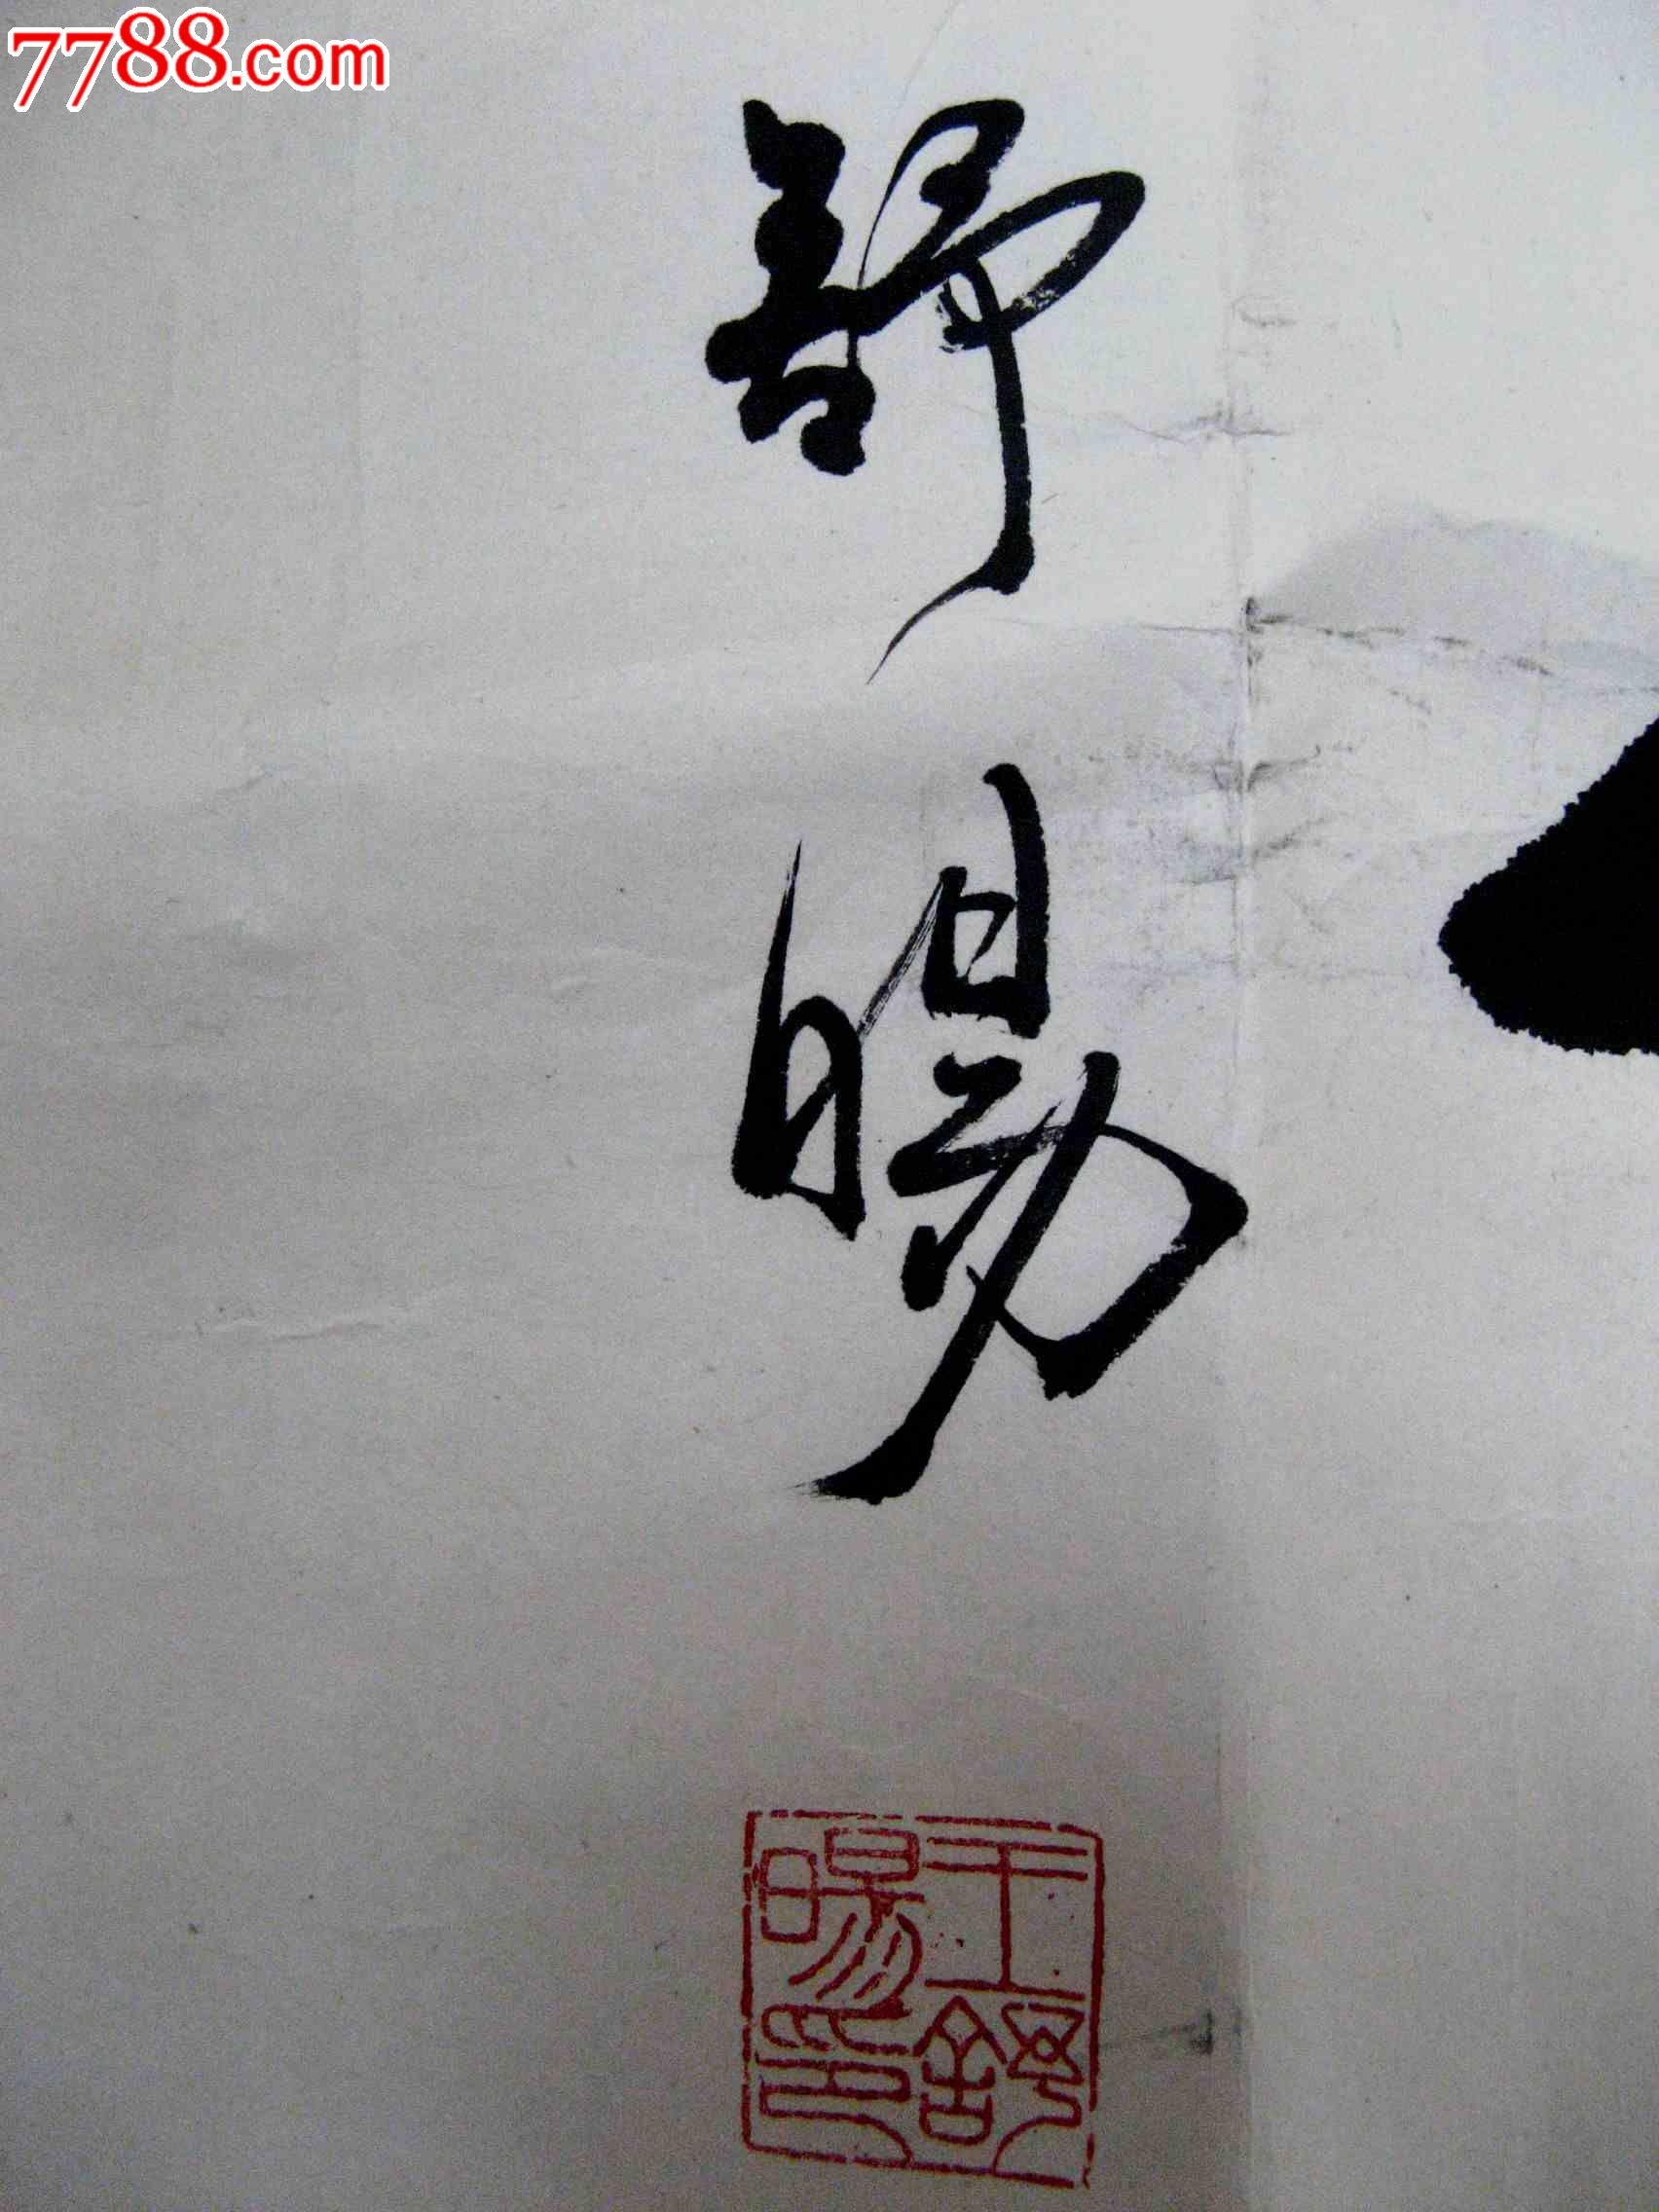 7788.com
舒
暘
王舒
暘印